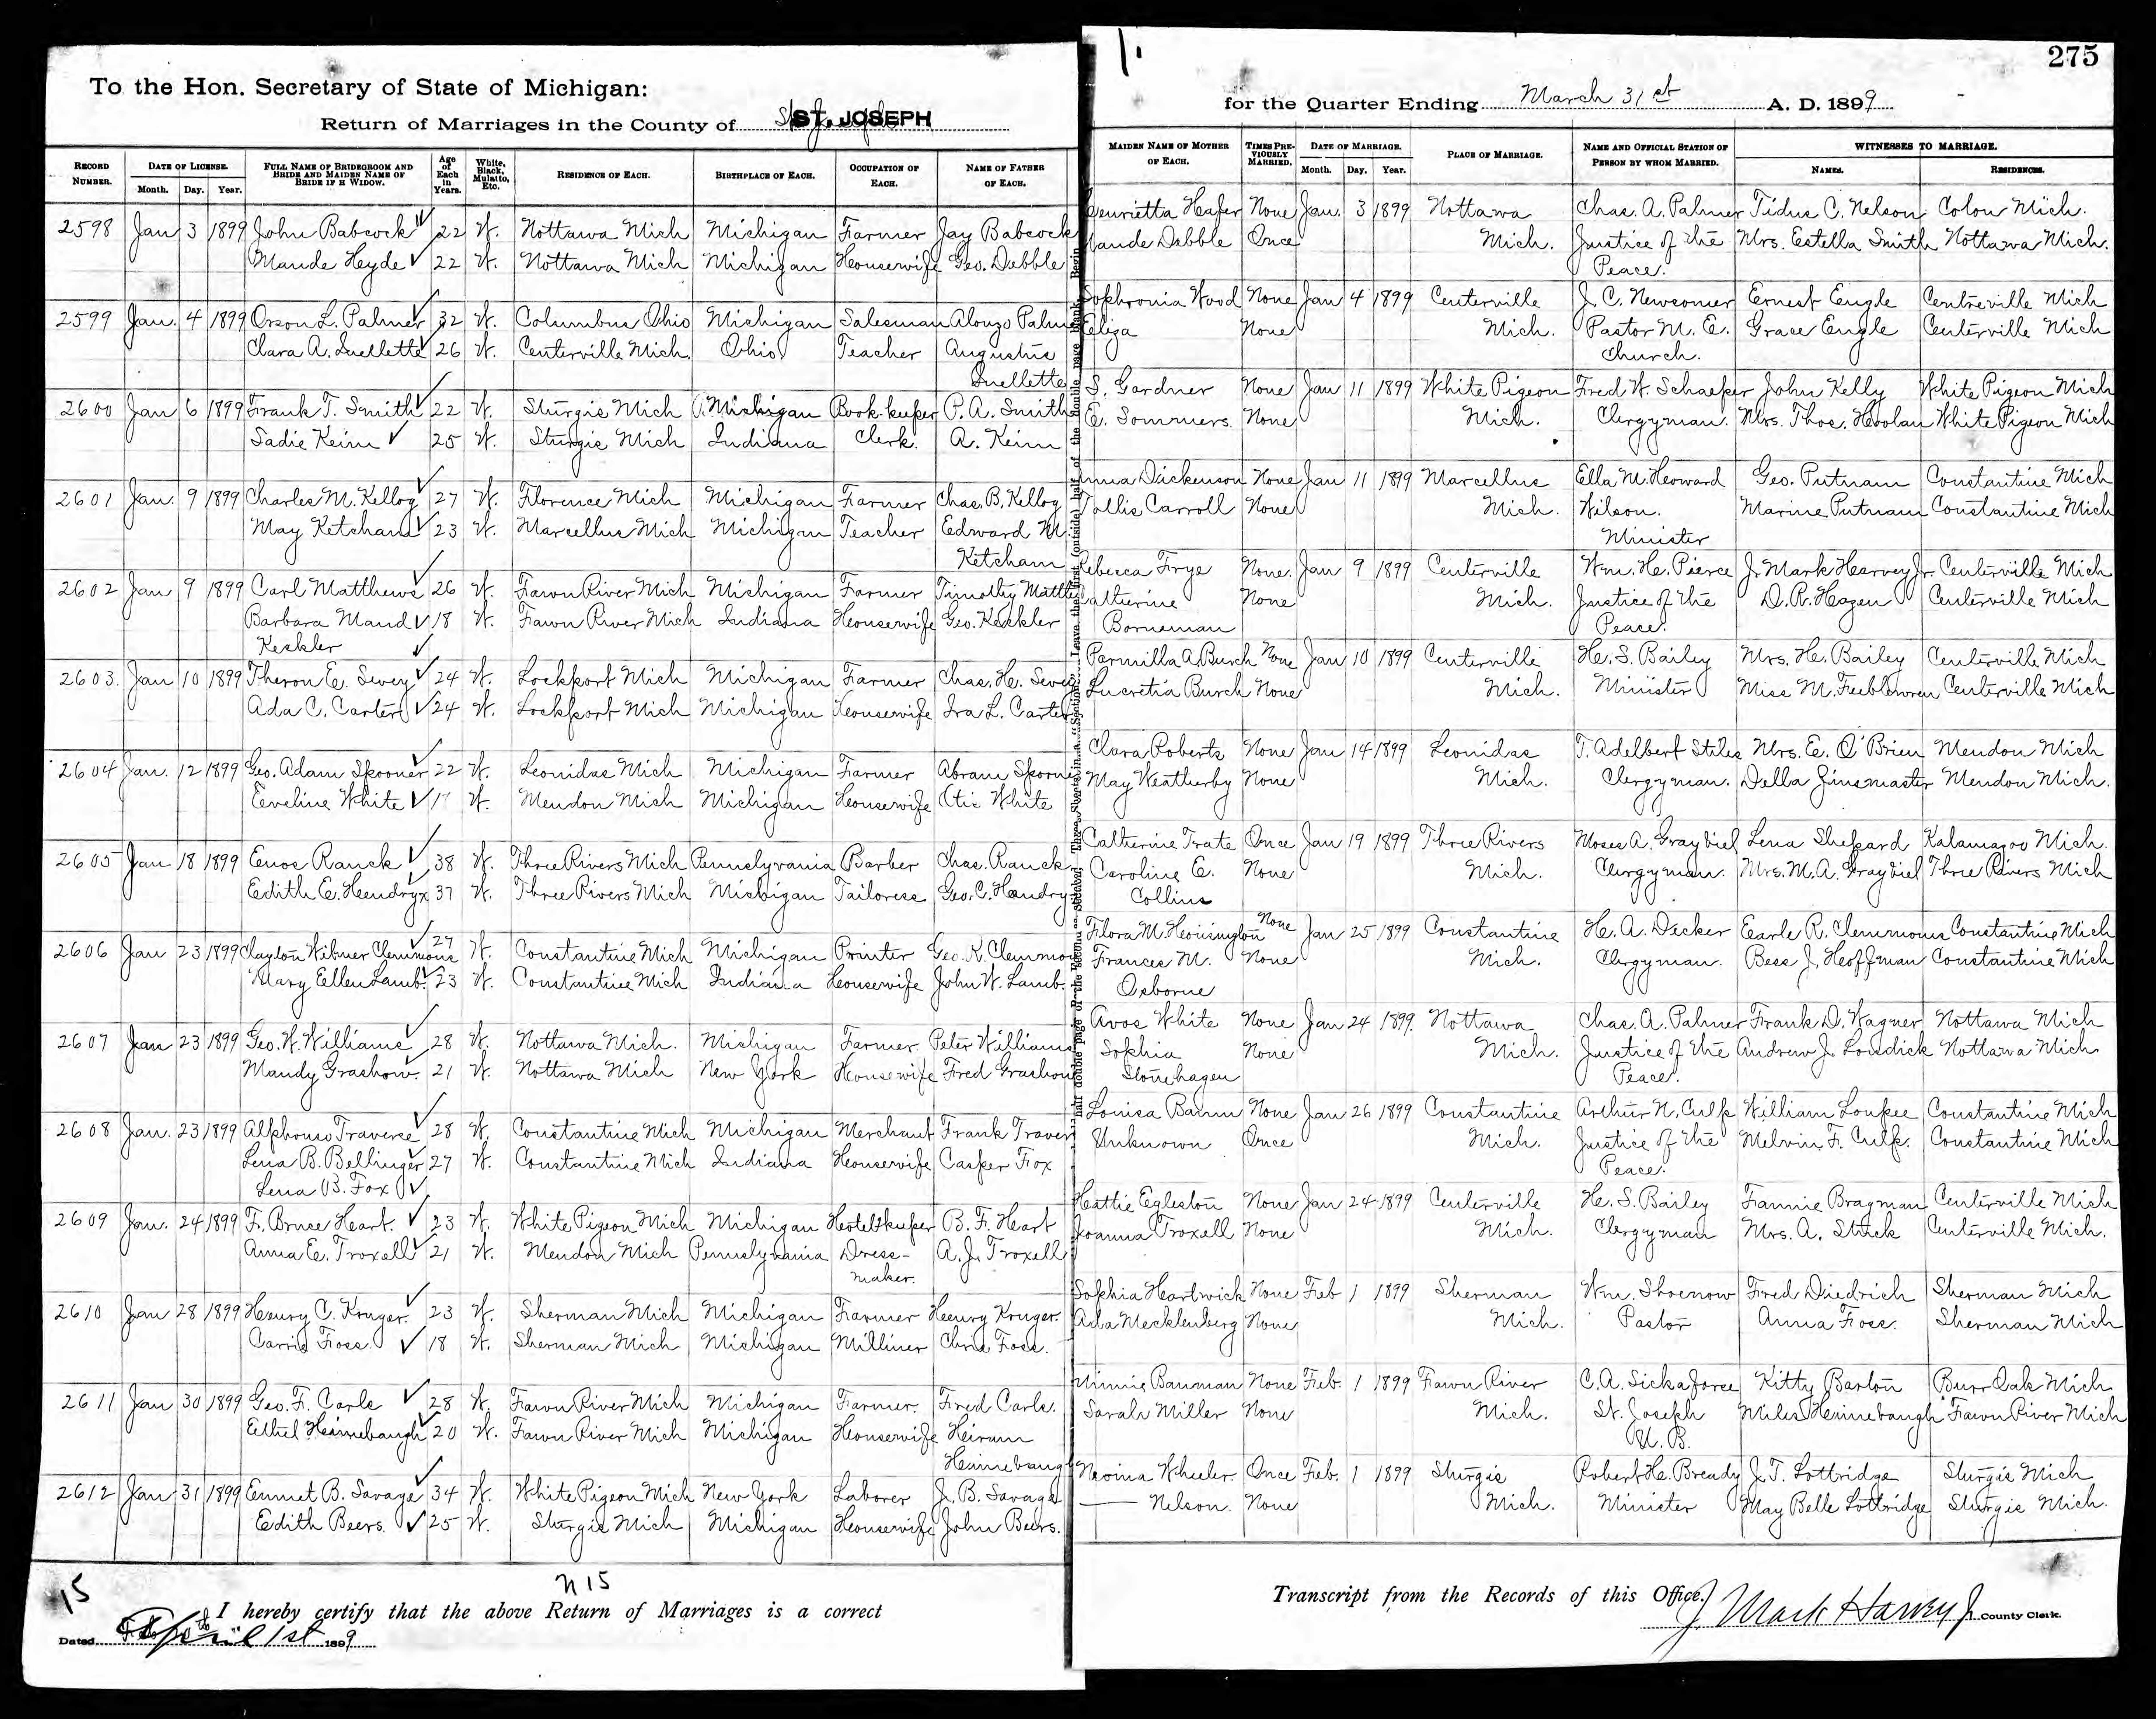 275
To the Hon. Secretary of State of Michigan:
Return of Marriages in the County of ST. JOSEPH
for the Quarter Ending March 31st A. D. 1899
RECORD NUMBER. DATE OF LICENSE. Month. Day. Year. FULL NAME OF BRIDEGROOM AND BRIDE AND MAIDEN NAME OF BRIDE IF A WIDOW. Age of Each in Years. White, Black, Mulatto, Etc. RESIDENCE OF EACH. BIRTHPLACE OF EACH. OCCUPATION OF EACH. NAME OF FATHER OF EACH.
2598 Jan 3 1899 John Babcock 22 W. Nottawa Mich Michigan Farmer Jay Babcock
Maude Heyde 22 W. Nottawa Mich Michigan Housewife Geo. Dabble
2599 Jan. 4 1899 Orson L. Palmer 32 W. Columbus Ohio Michigan Salesman Alonzo Palm
Clara A. Quellette 26 W. Centerville Mich. Ohio Teacher Augustus
Quellette
2600 Jan 6 1899 Frank T. Smith 22 W. Sturgis Mich Michigan Book-keeper P. A. Smith
Sadie Keim 25 W. Sturgis Mich Indiana Clerk. A. Keim
2601 Jan. 9 1899 Charles M. Kellog 27 W. Florence Mich Michigan Farmer Chas. B. Kellog
May Ketcham 23 W. Marcellus Mich Michigan Teacher Edward M.
Ketcham
2602 Jan 9 1899 Carl Matthews 26 W. Fawn River Mich Michigan Farmer Timothy Matthe
Barbara Maud 18 W. Fawn River Mich Indiana Housewife Geo. Keckler
Keckler
2603. Jan 10 1899 Theron E. Sevey 24 W. Lockport Mich Michigan Farmer Chas. H. Seve
Ada C. Carter 24 W. Lockport Mich Michigan Housewife Ira L. Carter
2604 Jan. 12 1899 Geo. Adam Spooner 22 W. Leonidas Mich Michigan Farmer Abram Spoone
Eveline White W. Mendon Mich Michigan Housewife Otis White
2605 Jan 18 1899 Enos Ranck 38 W. Three Rivers Mich Pennsylvania Barber Chas. Ranck
Edith E. Hendryx 37 W. Three Rivers Mich Michigan Tailoress Geo. C. Hendry
2606 Jan 23 1899 Clayton Wilmer Clemmons 27 W. Constantine Mich Michigan Printer Geo. K. Clemmo
Mary Ellen Lamb. 23 W. Constantine Mich Indiana Housewife John W. Lamb.
2607 Jan 23 1899 Geo. W. Williams 28 W. Nottawa Mich. Michigan Farmer. Peter Williams
Mandy Grashow. 21 W. Nottawa Mich New York Housewife Fred Grashow
2608 Jan. 23 1899 Alphonso Traverse 28 W. Constantine Mich Michigan Merchant Frank Traver
Lena B. Bellinger 27 W. Constantine Mich Indiana Housewife Casper Fox
Lena B. Fox
2609 Jan. 24 1899 F. Bruce Heart. 23 W. White Pigeon Mich Michigan Hotel-keeper B. F. Heart
Anna E. Troxell 21 W. Mendon Mich Pennsylvania Dress- A. J. Troxell
maker.
2610 Jan 28 1899 Henry C. Kruger. 23 W. Sherman Mich Michigan Farmer Henry Kruger.
Carrie Foss. 18 W. Sherman Mich Michigan Milliner Chris Foss.
2611 Jan 30 1899 Geo. F. Carls 28 W. Fawn River Mich Michigan Farmer. Fred Carls.
Ethel Heinnebaugh 20 W. Fawn River Mich Michigan Housewife Hiram
Heinnebaugh
2612 Jan 31 1899 Emmet B. Savage 34 W. White Pigeon Mich New York Laborer J. B. Savage
Edith Beers. 25 W. Sturgis Mich Michigan Housewife John Beers.
15
n 15
I hereby certify that the above Return of Marriages is a correct
Dated April 1st 1899
MAIDEN NAME OF MOTHER OF EACH. TIMES PREVIOUSLY MARRIED. DATE OF MARRIAGE. Month. Day. Year. PLACE OF MARRIAGE. NAME AND OFFICIAL STATION OF PERSON BY WHOM MARRIED. WITNESSES TO MARRIAGE. NAMES. RESIDENCES.
Henrietta Hafer None Jan. 3 1899 Nottawa Chas. A. Palmer Tidus C. Nelson Colon Mich.
Maude Dabble Once Mich. Justice of the Mrs. Estella Smith Nottawa Mich.
Peace.
Sophronia Wood None Jan 4 1899 Centerville J. C. Newcomer Ernest Engle Centreville Mich
Eliza None Mich. Pastor M. E. Grace Engle Centerville Mich
Church.
S. Gardner None Jan 11 1899 White Pigeon Fred W. Schaefer John Kelly White Pigeon Mich
E. Sommers None Mich. Clergyman. Mrs. Thos. Hoolan White Pigeon Mich
Anna Dickenson None Jan 11 1899 Marcellus Ella M. Howard Geo. Putnam Constantine Mich
Tollie Carroll None Mich. Wilson. Marine Putnam Constantine Mich
Minister
Rebecca Frye None. Jan 9 1899 Centerville Wm. H. Pierce J. Mark Harvey Jr. Centerville Mich
Catherine None Mich. Justice of the D. R. Hazen Centerville Mich
Borneman Peace.
Parmilla A. Burch None Jan 10 1899 Centerville H. S. Bailey Mrs. H. Bailey Centerville Mich
Lucretia Burch None Mich. Minister Miss M. Centerville Mich
Clara Roberts None Jan 14 1899 Leonidas T. Adelbert Stiles Mrs. E. O'Brien Mendon Mich
May Weatherby None Mich. Clergyman. Della Mendon Mich.
Catherine Trate Once Jan 19 1899 Three Rivers Moses A. Graybiel Lena Shepard Kalamazoo Mich.
Caroline E. None Mich. Clergyman. Mrs. M. A. Graybiel Three Rivers Mich
Collins
Flora M. Honington None Jan 25 1899 Constantine H. A. Decker Earle R. Clemmons Constantine Mich
Frances M. None Mich. Clergyman. Bess J. Hoffman Constantine Mich
Osborne
Avos White None Jan 24 1899. Nottawa Chas. A. Palmer Frank D. Wagner Nottawa Mich
Sophia None Mich. Justice of the Andrew J. Losdick Nottawa Mich
Stonehagen Peace.
Louisa Baum None Jan 26 1899 Constantine Arthur N. Culp William Loupee Constantine Mich
Unknown Once Mich. Justice of the Melvin F. Culp. Constantine Mich
Peace.
Hattie Egleston None Jan 24 1899 Centerville H. S. Bailey Fannie Bragman Centerville Mich
Joanna Troxell None Mich. Clergyman Mrs. A. Stuck Centerville Mich.
Sophia Heartwick None Feb 1 1899 Sherman Wm. Shoenow Fred Diedrich Sherman Mich
Ada Mecklenberg None Mich. Pastor Anna Foss. Sherman Mich
Minnie Bauman None Feb. 1 1899 Fawn River C. A. Sickafoose Kitty Barton Burr Oak Mich
Sarah Miller None Mich. St. Joseph Miles Heinnebaugh Fawn River Mich
U. B.
Wheeler. Once Feb. 1 1899 Sturgis Robert H. Bready J. T. Lottridge Sturgis Mich
Nelson. None Mich. Minister May Belle Lottridge Sturgis Mich.
Transcript from the Records of this Office.
J. Mark Harvey Jr. County Clerk.